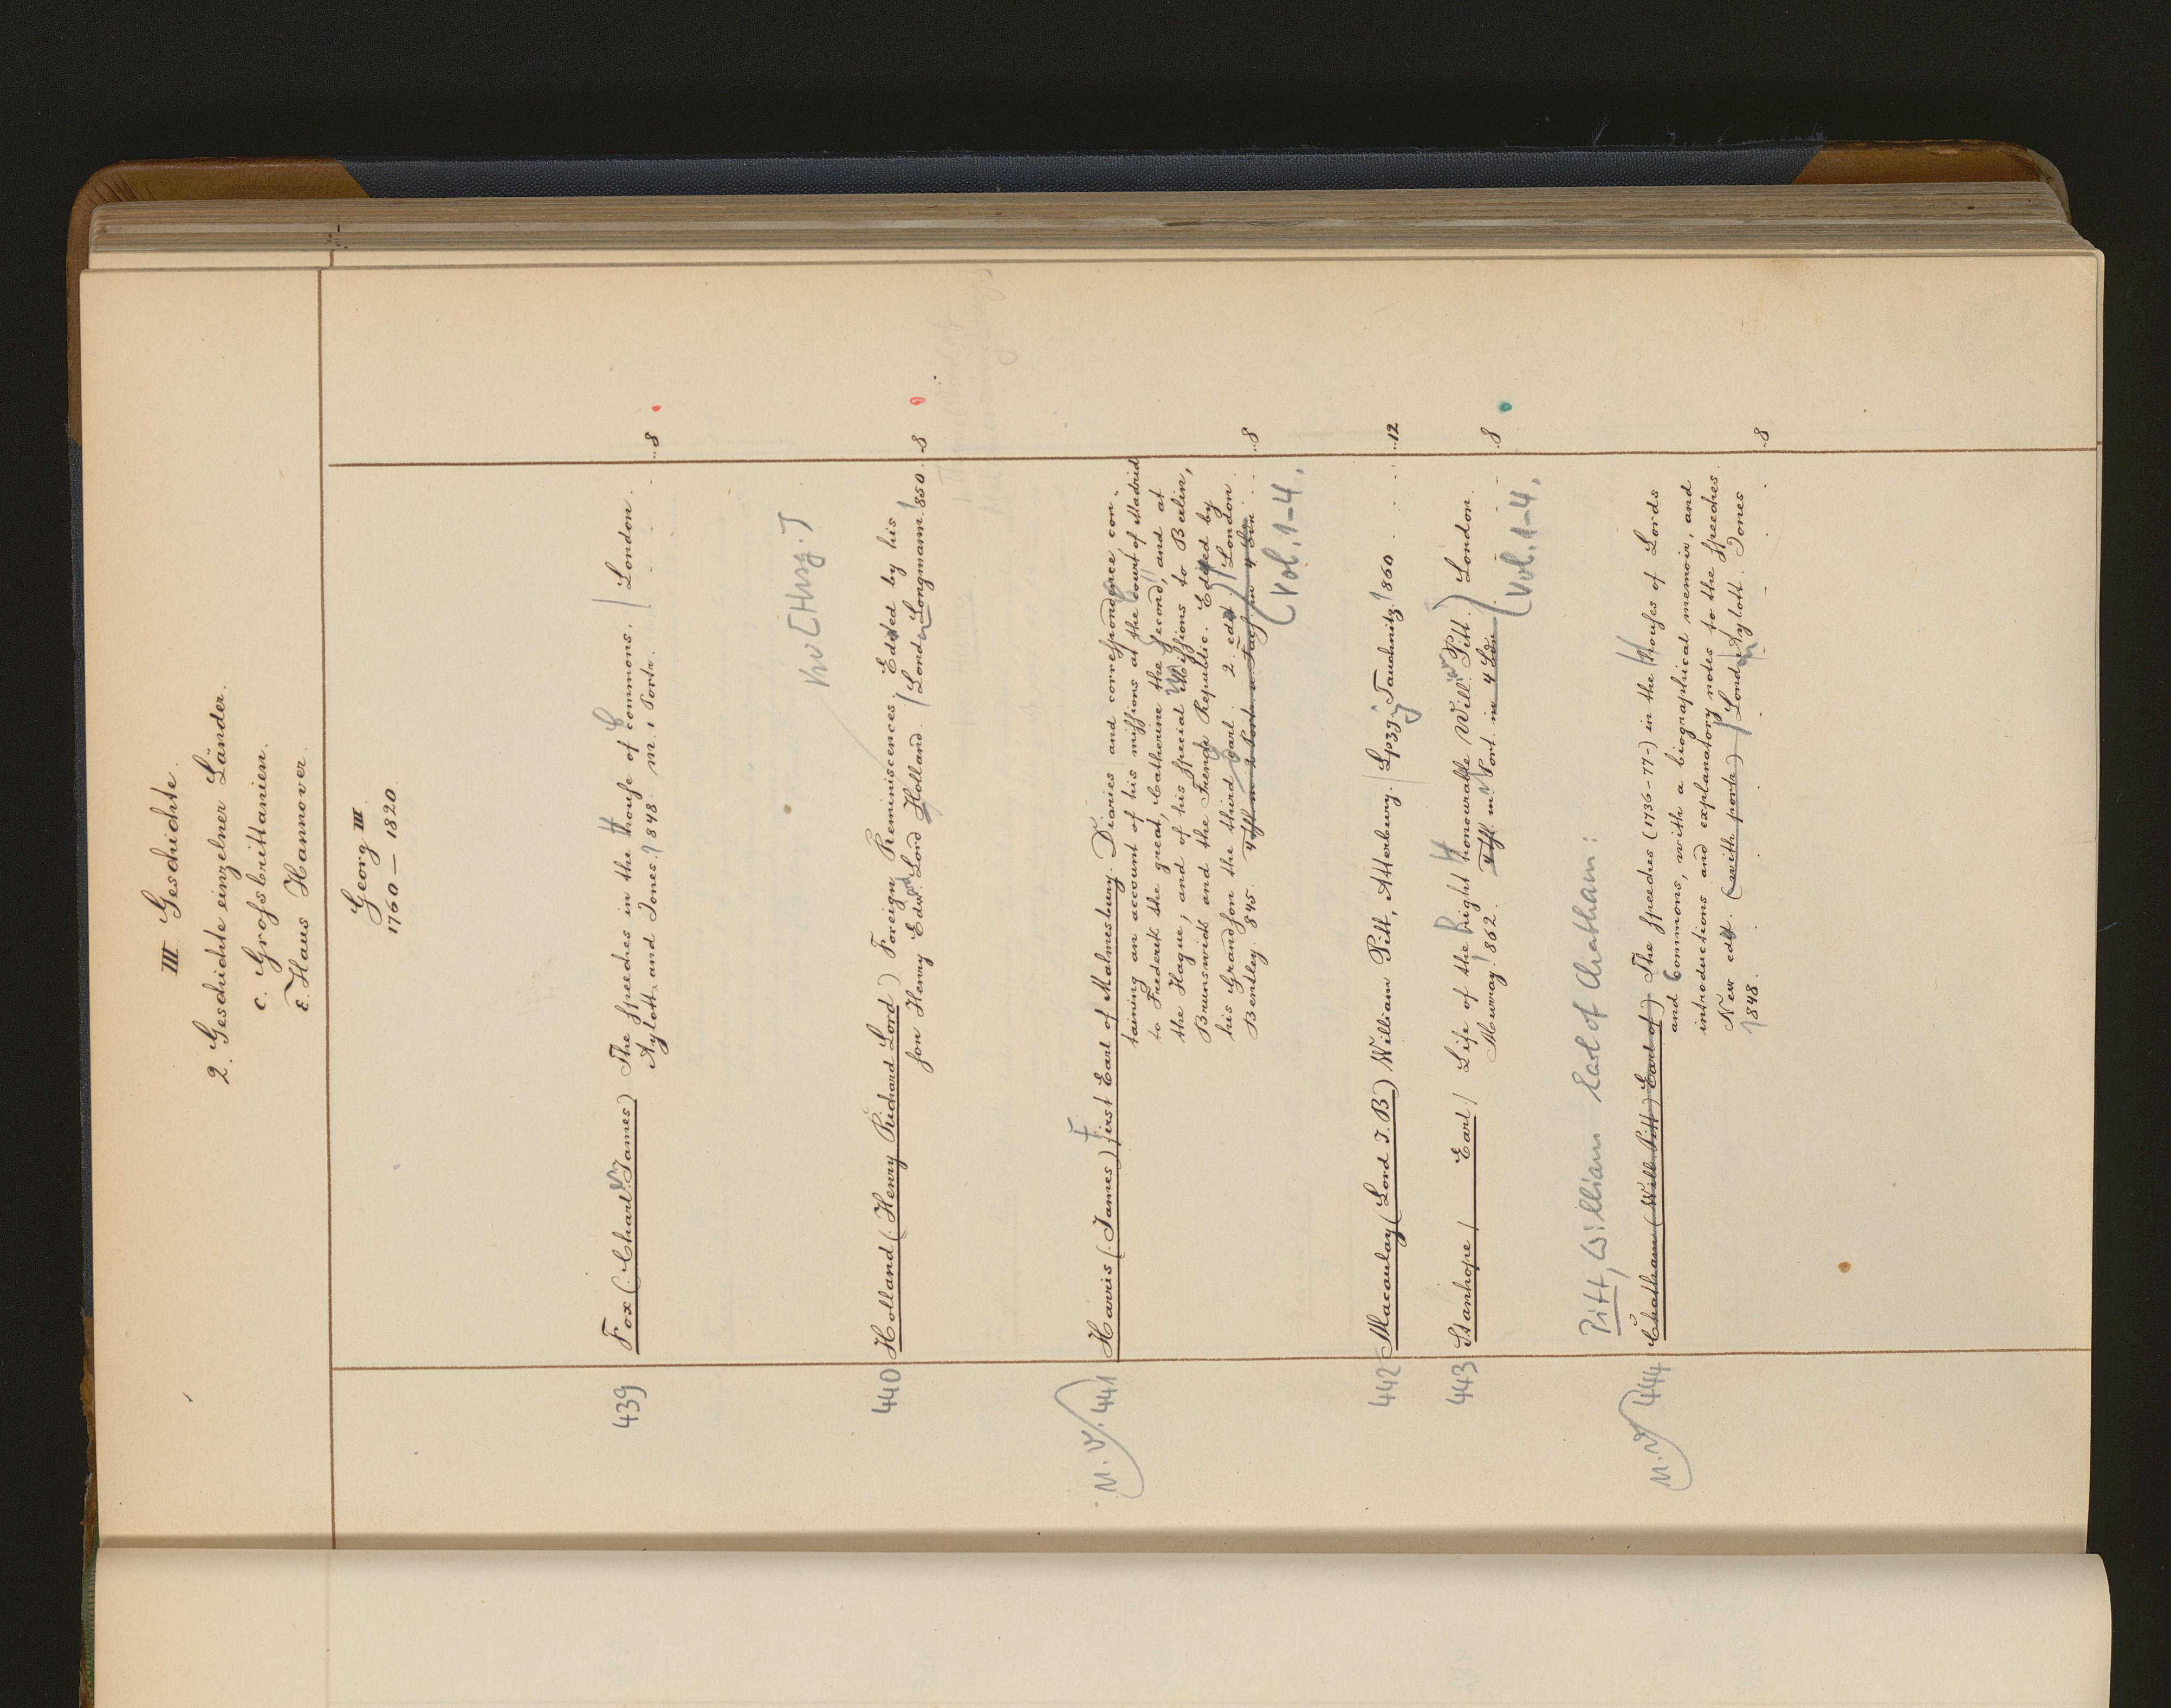 III Geschichte.
2. Geschichte einzelner Länder.
c. Grossbrittanien.
ε. Haus Hannover.
Georg III.
1760 — 1820.
439 Fox (Charl. James) The speeches in the House of Commons. / London.
Aylott and Jones. 1848. M. 1 Portr. . . . 8
440 Holland (Henry Richard Lord) Foreign Reminiscences. Edited by his
son Henry Edward Lord Holland. / London Longmann. 1850. . 8
441 Harris (James) First Earl of Malmesbury. Diaries and correspondence, con-
taining an account of his missions at the Court of Madrid
to Frederik the great, Catherine the second, and at
the Hague, and of his special Missions to Berlin,
Brunswick and the French Republic. Edited by
his Grandson the third earl. 2. ed. / London
Bentley. 845. . . . 8
(Vol. 1-4.
442 Macaulay (Lord T. B) William Pitt, Atterbury. / Lpzg. Tauchnitz. 1860 . . . . 12
443 Stanhope / Earl / Life of the Right Honourable Will. Pitt. ) London.
Murray. 1862. m Port. in 4 . . 8
(Vol. 1-4.
Pitt, William Earl of Chatham:
444 Chatham (Will Pitt) Earl of) The speeches (1736-77-) in the Houses of Lords
and Commons, with a biographical memoir, and
introductions and explanatory notes to the speeches.
New ed. (with portr) / London Aylott. Jones
1848. . . . . . 8